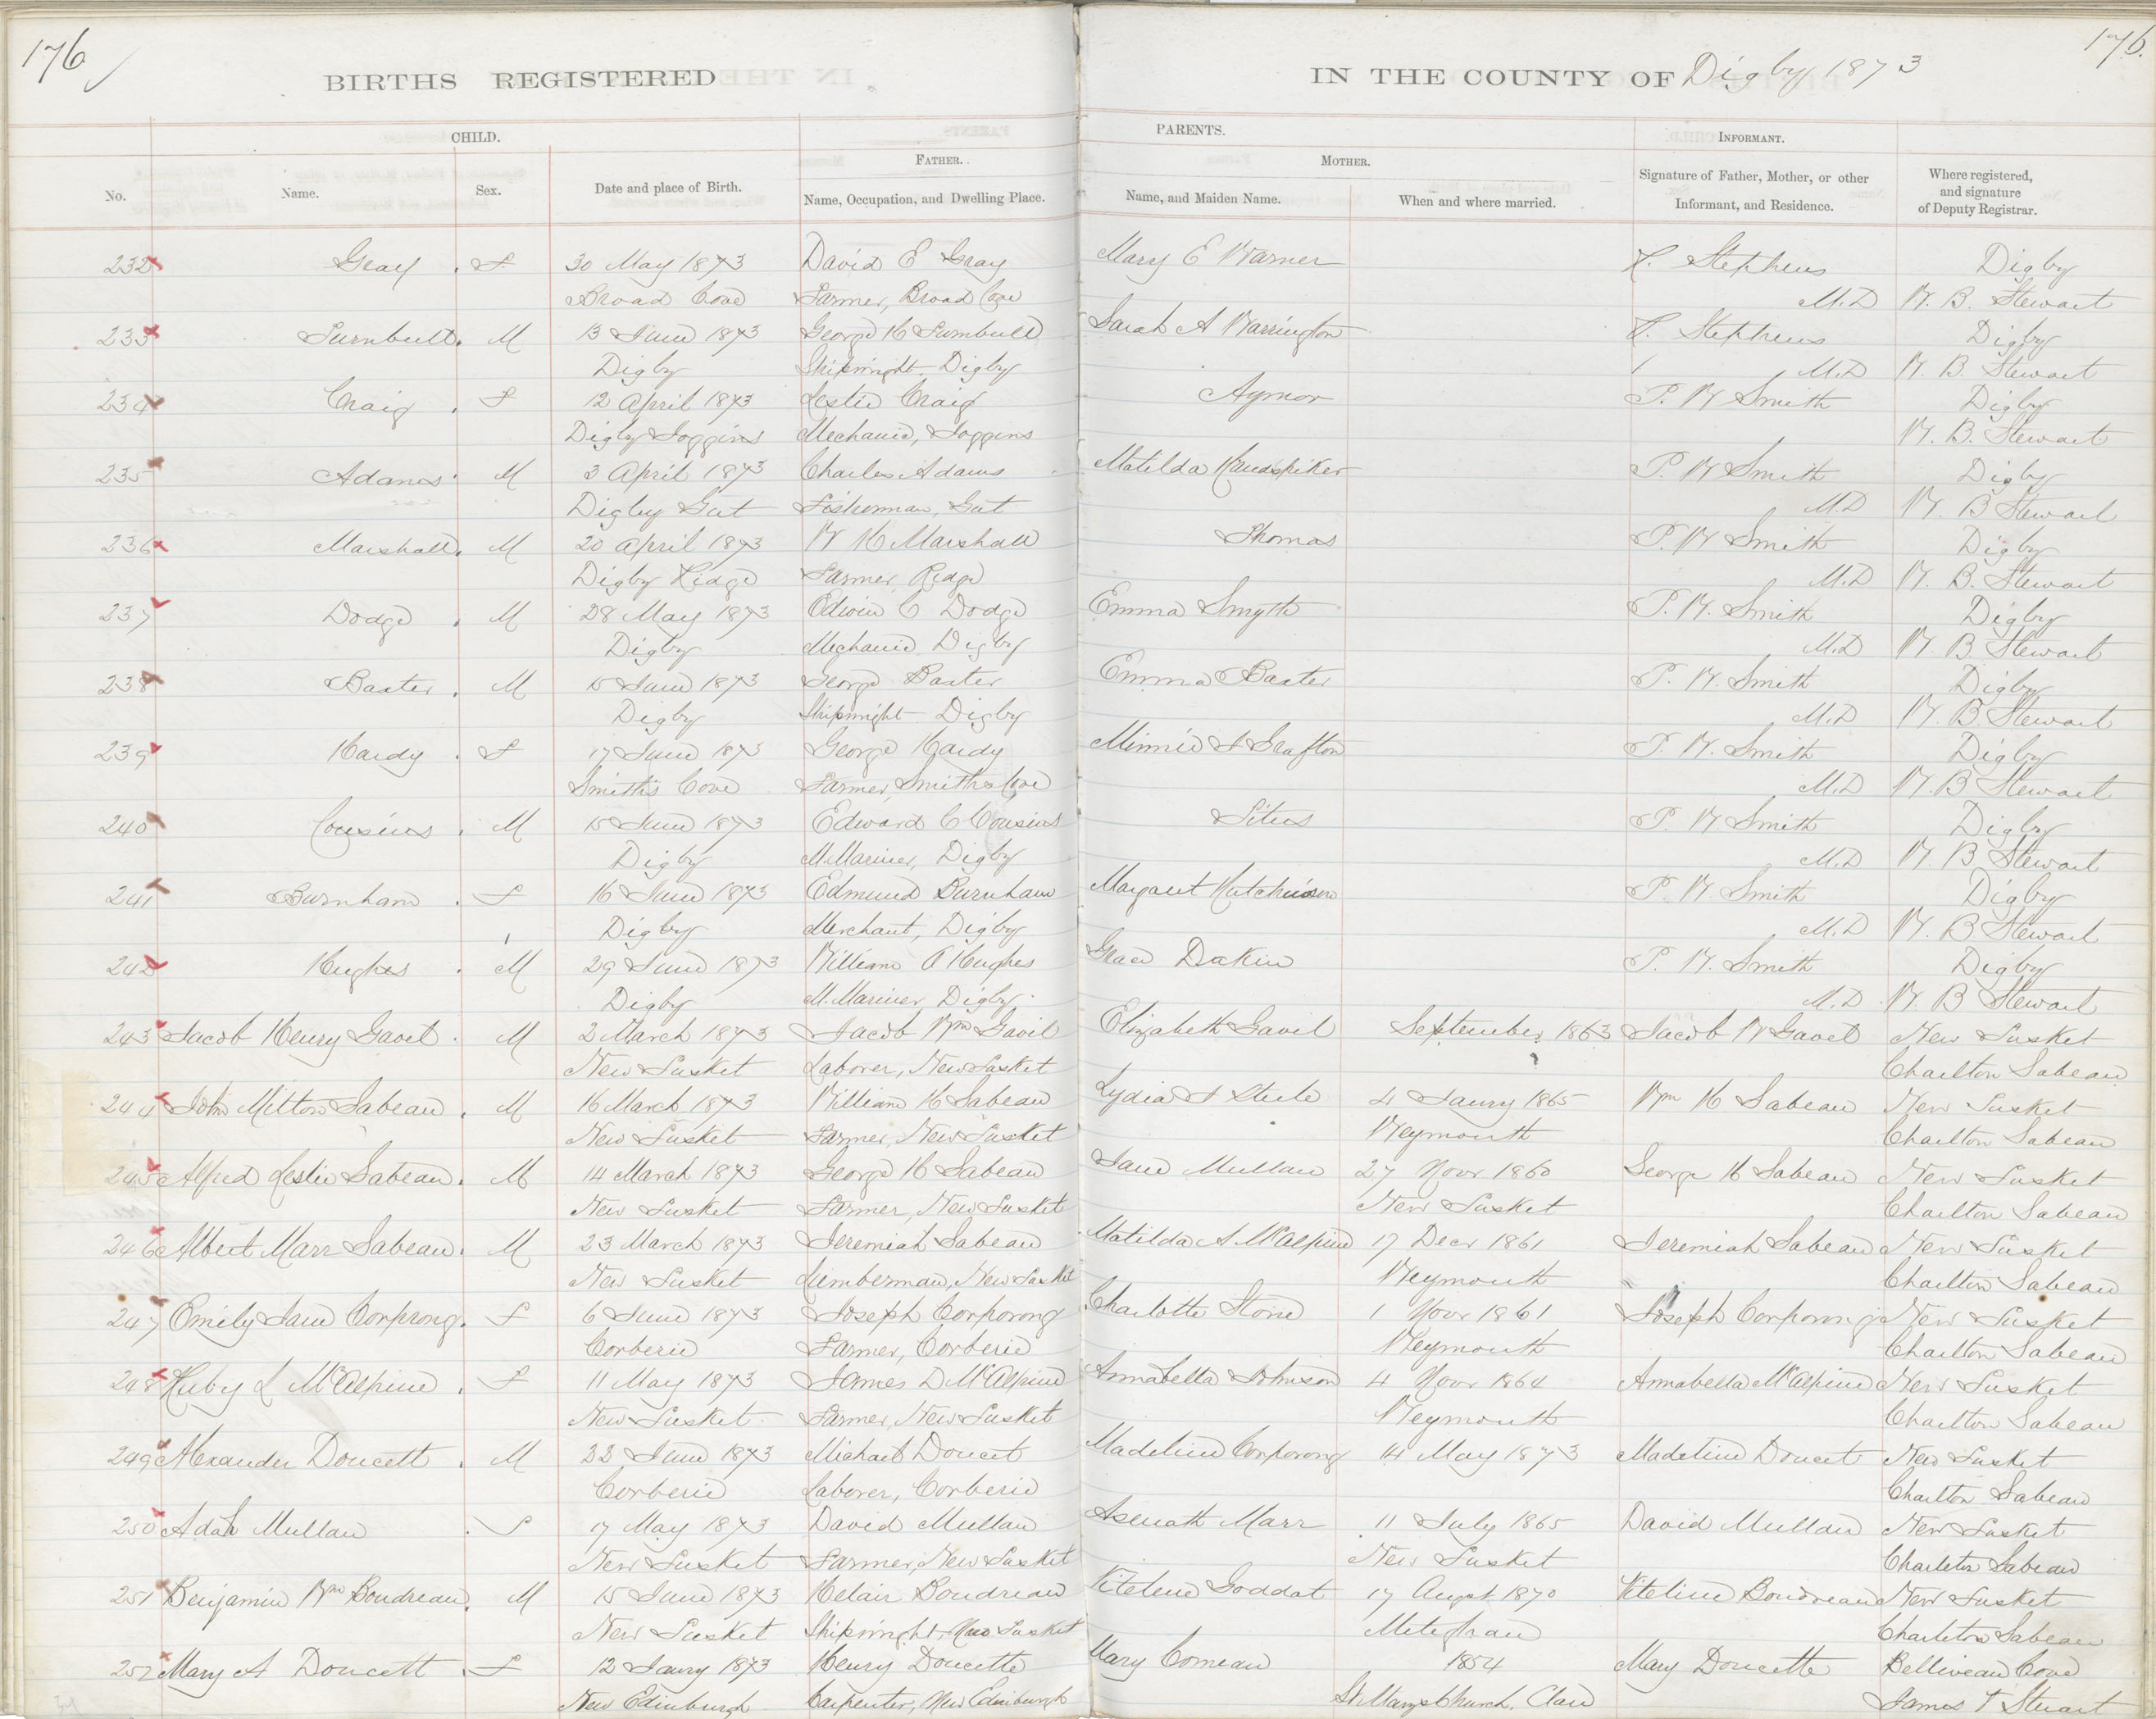 176
176.
BIRTHS REGISTERED IN THE COUNTY OF Digby 1873
CHILD. PARENTS. INFORMANT.
FATHER. MOTHER.
No. Name. Sex. Date and place of Birth. Name, Occupation, and Dwelling Place. Name, and Maiden Name. When and where married. Signature of Father, Mother, or other Informant, and Residence. Where registered, and signature of Deputy Registrar.
232 Gray F 30 May 1873 David E Gray Mary E Warner Stephens Digby
Broad Cove Farmer, Broad Cove M.D W. B. Stewart
233 Turnbull M 13 June 1873 George H Turnbull Sarah A Warrington Stephens Digby
Digby Shipwright Digby M.D W. B Stewart
234 Craig F 12 April 1873 Leslie Craig Aymor P. W Smith Digby
Digby Joggins Mechanic, Joggins W. B. Stewart
235 Adams M 3 April 1873 Charles Adams Matilda Handspiker P. W Smith Digby
Digby Gut Fisherman, Gut M.D W. B Stewart
236 Marshall M 20 April 1873 W H Marshall Thomas P. W Smith Digby
Digby Ridge Farmer, Ridge M.D W. B. Stewart
237 Dodge M 28 May 1873 Edwin C Dodge Emma Smyth P. W. Smith Digby
Digby Mechanic Digby M.D W. B Stewart
238 Baxter M 15 June 1873 George Baxter Emma Baxter P. W. Smith Digby
Digby Shipwright Digby M.D W. B Stewart
239 Hardy F 17 June 1873 George Hardy Minnie F Grafton P. W. Smith Digby
Smith's Cove Farmer, Smith's Cove M.D W. B Stewart
240 Cousins M 15 June 1873 Edward C Cousins Titus P. W Smith Digby
Digby M. Mariner, Digby M.D W. B Stewart
241 Burnham F 16 June 1873 Edmund Burnham Margaret Hutchinson P. W Smith Digby
Digby Merchant, Digby M.D W. B Stewart
242 Hughes M 29 June 1873 William A Hughes Grace Dakin P. W. Smith Digby
Digby M. Mariner, Digby M.D W. B Stewart
243 Jacob Henry Gavel M 2 March 1873 Jacob Wm Gavil Elizabeth Gavil September 1863 Jacob W Gavel New Tusket
New Tusket Laborer, New Tusket Charlton Sabean
244 John Milton Sabean M 16 March 1873 William H Sabean Lydia F Steele 4 Jaury 1865 Wm H Sabean New Tusket
New Tusket Farmer, New Tusket Weymouth Charlton Sabean
245 Alfred Leslie Sabean M 14 March 1873 George H Sabean Jane Mullan 27 Novr 1860 George H Sabean New Tusket
New Tusket Farmer, New Tusket New Tusket Charlton Sabean
246 Albert Marr Sabean M 23 March 1873 Jeremiah Sabean Matilda A McAlpine 17 Decr 1861 Jeremiah Sabean New Tusket
New Tusket Lumberman, New Tusket Weymouth Charlton Sabean
247 Emily Jane Corprong F 6 June 1873 Joseph Corporong Charlotte Stone 1 Novr 1861 Joseph Corporong New Tusket
Corberie Farmer, Corberie Weymouth Charlton Sabean
248 Ruby L McAlpine F 11 May 1873 James D McAlpine Annabella Johnson 4 Novr 1864 Annabella McAlpine New Tusket
New Tusket Farmer, New Tusket Weymouth Charlton Sabean
249 Alexander Doucett M 22 June 1873 Michael Doucet Madeline Corporong 14 May 1873 Madeline Doucet New Tusket
Corberie Laborer, Corberie Charlton Sabean
250 Adah Mullan F 17 May 1873 David Mullan Asenath Marr 11 July 1865 David Mullan New Tusket
New Tusket Farmer, New Tusket New Tusket Charleton Sabean
251 Benjamin Wm Boudreau M 15 June 1873 Helair Boudreau Viteline Goddat 17 Augst 1870 Viteline Boudreau New Tusket
New Tusket Shipwright, New Tusket Meteghan Charleton Sabean
252 Mary A Doucett F 12 Jaury 1873 Henry Doucette Mary Comeau 1854 Mary Doucette Belliveau Cove
New Edinburgh Carpenter, New Edinburgh St Marys Church, Clare James T Stuart